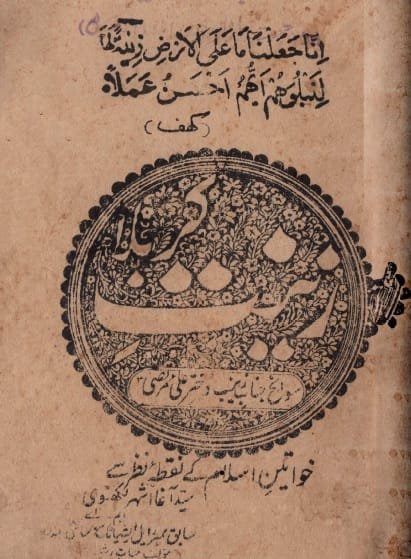 اِنَّا جَعَلْنَا مَا عَلَى الْاَرْضِ زِيْنَةً لَّهَا
لِنَبْلُوَهُمْ اَيُّهُمْ اَحْسَنُ عَمَلًا
(کہف)
زینبِ کبریٰ
سوانح جناب زینب دختر علی مرتضیٰ
خواتینِ اسلام کے نقطۂ نظر سے
سید آغا اشہر لکھنوی
سابق